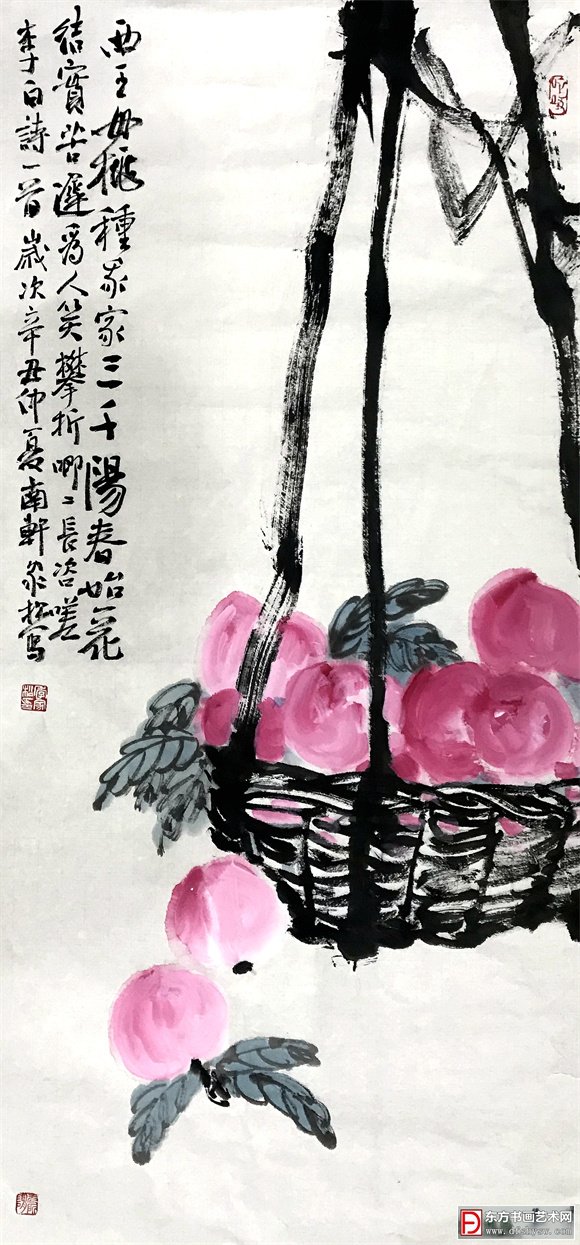 西王母桃種我家三千陽春始一花
結實苦遲爲人笑攀折唧〻長咨嗟
李白詩一首歲次辛丑仲夏南軒家松寫
东方书画艺术网